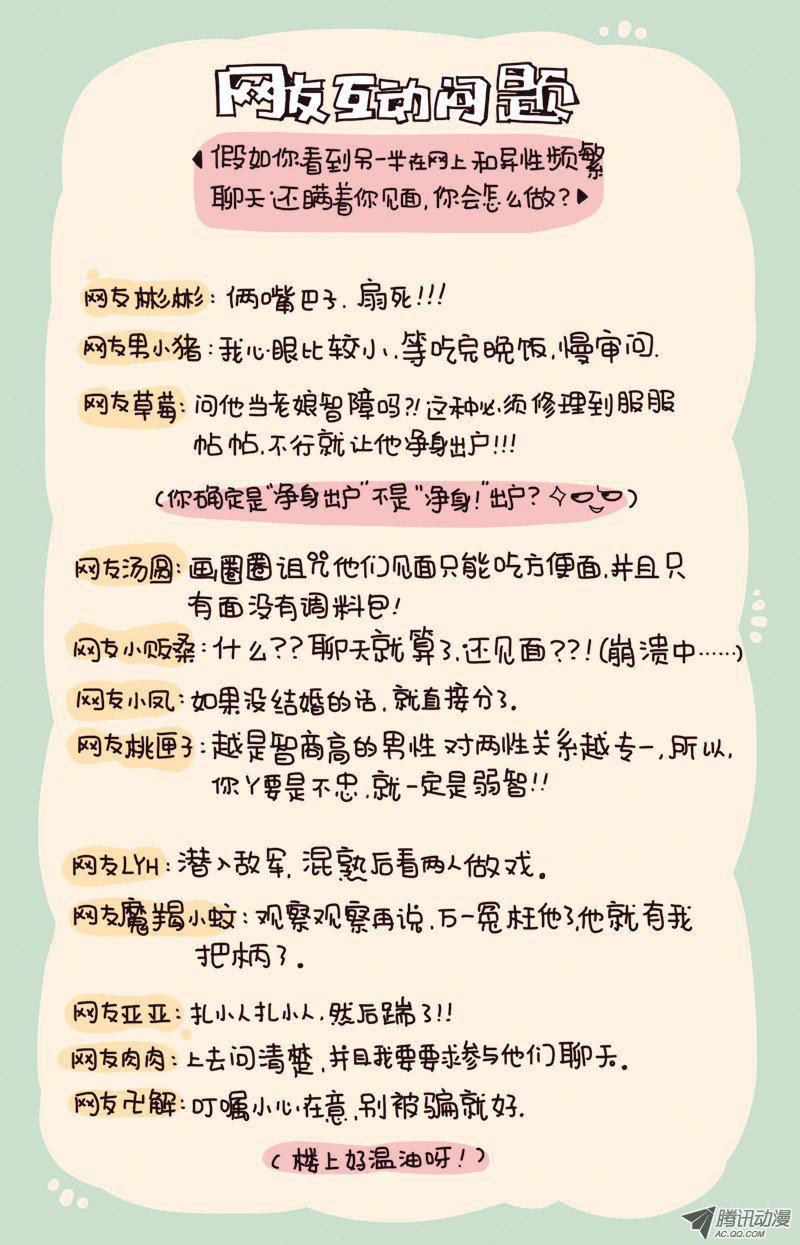 网友互动问题
假如你看到另一半在网上和异性频繁
聊天还瞒着你见面,你会怎么做?
网友彬彬:俩嘴巴子.扇死!!!
网友男小猪:我心眼比较小.等吃完晚饭,慢审问.
网友草莓:问他当老娘智障吗?!这种必须修理到服服
帖帖.不行就让他净身出户!!!
(你确定是“净身出户”不是“净身!”出户?)
网友汤圆:画圈圈诅咒他们见面只能吃方便面,并且只
有面没有调料包!
网友小贩桑:什么??聊天就算了.还见面??!(崩溃中……)
网友小凤:如果没结婚的话,就直接分了.
网友桃匣子:越是智商高的男性对两性关系越专一,所以,
你丫要是不忠,就一定是弱智!!
网友LYH:潜入敌军,混熟后看两人做戏。
网友魔羯小蚊:观察观察再说,万一冤枉他了,他就有我
把柄了。
网友亚亚:扎小人扎小人,然后踹了!!
网友肉肉:上去问清楚,并且我要要求参与他们聊天。
网友卍解:叮嘱小心在意,别被骗就好.
(楼上好温油呀!)
腾讯动漫
AC.QQ.COM